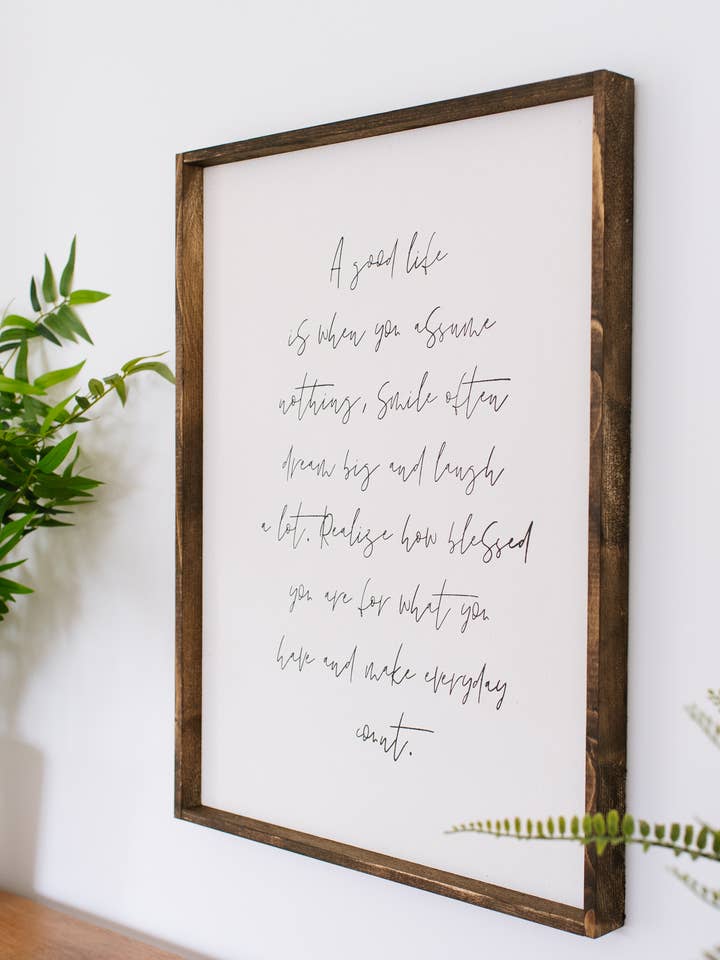 A good life
is when you assume
nothing, smile often
dream big and laugh
a lot. Realize how blessed
you are for what you
have and make everyday
count.